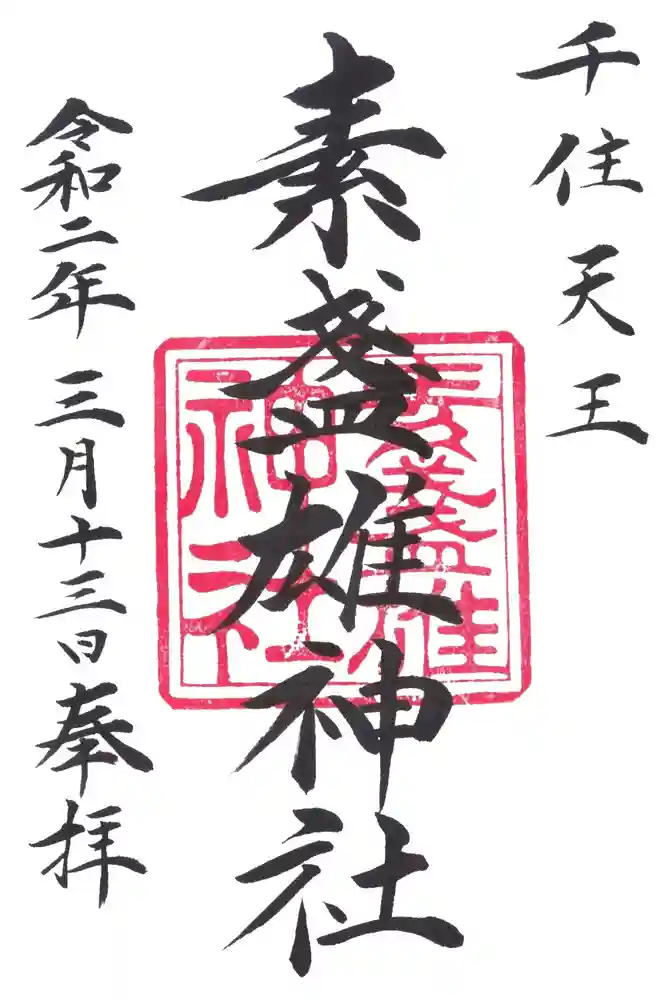 千住天王
素盞雄神社
素盞雄
神社
令和二年 三月十三日 奉拝